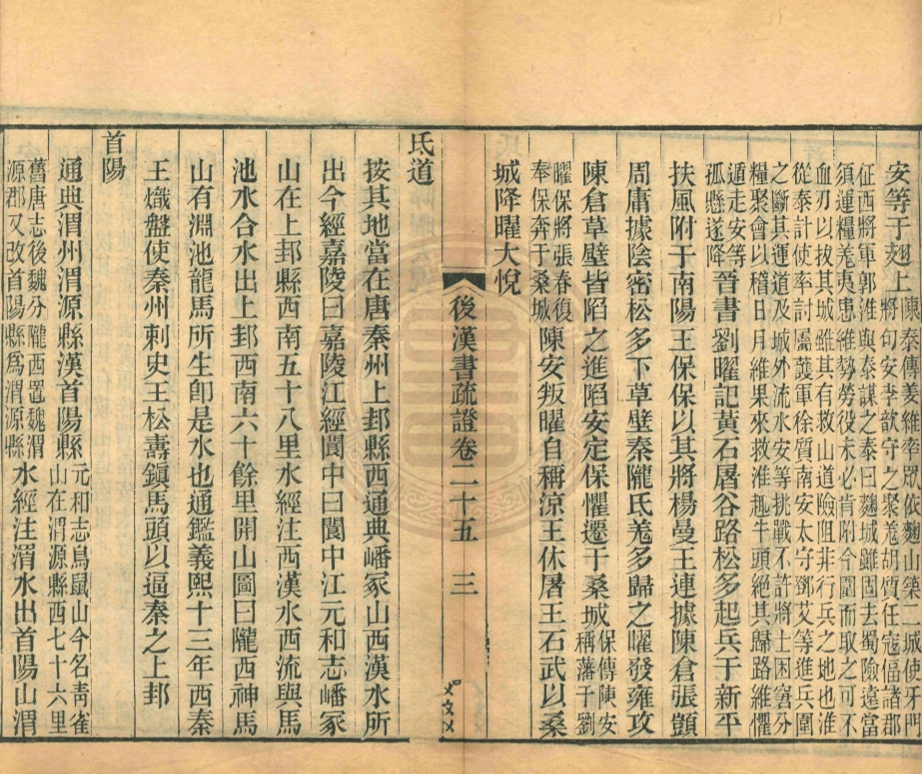 安等于翅上陳泰傳姜維率眾依麴山築二城使牙門將句安李歆守之聚羌胡質任寇偪諸郡
征西將軍郭淮與泰謀之泰曰麴城雖固去蜀險遠當須運糧羌夷患維勢勞役未必肯附今圍而取之可不
血刃以拔其城雖其有救山道險阻非行兵之地也淮從泰計使率討蜀護軍徐質南安太守鄧艾等進兵圍
之斷其運道及城外流水安等挑戰不許將士困窘分糧聚會以稽日月維果來救淮趣牛頭絕其歸路維懼
遁走安等孤懸遂降晉書劉曜記黃石屠谷路松多起兵于新平
扶風附于南陽王保保以其將楊曼王連據陳倉張顗
周庸據陰密松多下草壁秦隴氐羌多歸之曜發雍攻
陳倉草壁皆陷之進陷安定保懼遷于桑城保傳陳安稱藩于劉
曜保將張春復奉保奔于桑城陳安叛曜自稱涼王休屠王石武以桑
城降曜大悅
後漢書疏證卷二十五 三
氐道
按其地當在唐秦州上邽縣西通典嶓冢山西漢水所
出今經嘉陵曰嘉陵江經閬中曰閬中江元和志嶓冢
山在上邽縣西南五十八里水經注西漢水西流與馬
池水合水出上邽西南六十餘里開山圖曰隴西神馬
山有淵池龍馬所生卽是水也通鑑義熙十三年西秦
王熾盤使秦州刺史王松壽鎮馬頭以逼秦之上邽
首陽
通典渭州渭源縣漢首陽縣元和志鳥鼠山今名靑雀山在渭源縣西七十六里
舊唐志後魏分隴西置魏渭源郡又改首陽縣爲渭源縣水經注渭水出首陽山渭